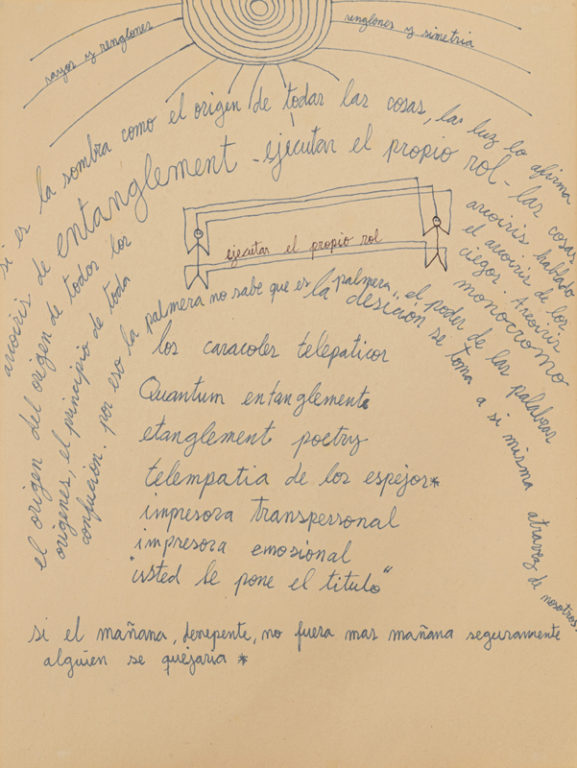 rayos y renglones
renglones y simetria
si es la sombra como el origen de todas las cosas, la luz lo afirma
arcoiris de entanglement - ejecutar el propio rol - las cosas
arcoiris hablado
el arcoiris de los
ciegos. Arcoiris
monocromo
ejecutar el propio rol
el origen del origen de todos los
origenes, el principio de toda
confucion. por eso la palmera no sabe que es la "palmera", el poder de las palabras
la desicion se toma a si misma atravez de nosotros.
los caracoles telepaticos
Quantum entanglement
etanglement poetry
telempatia de los espejos*
impresora transpersonal
impresora emosional
"usted le pone el titulo"
si el mañana, derepente, no fuera mas mañana seguramente
alguien se quejaria *